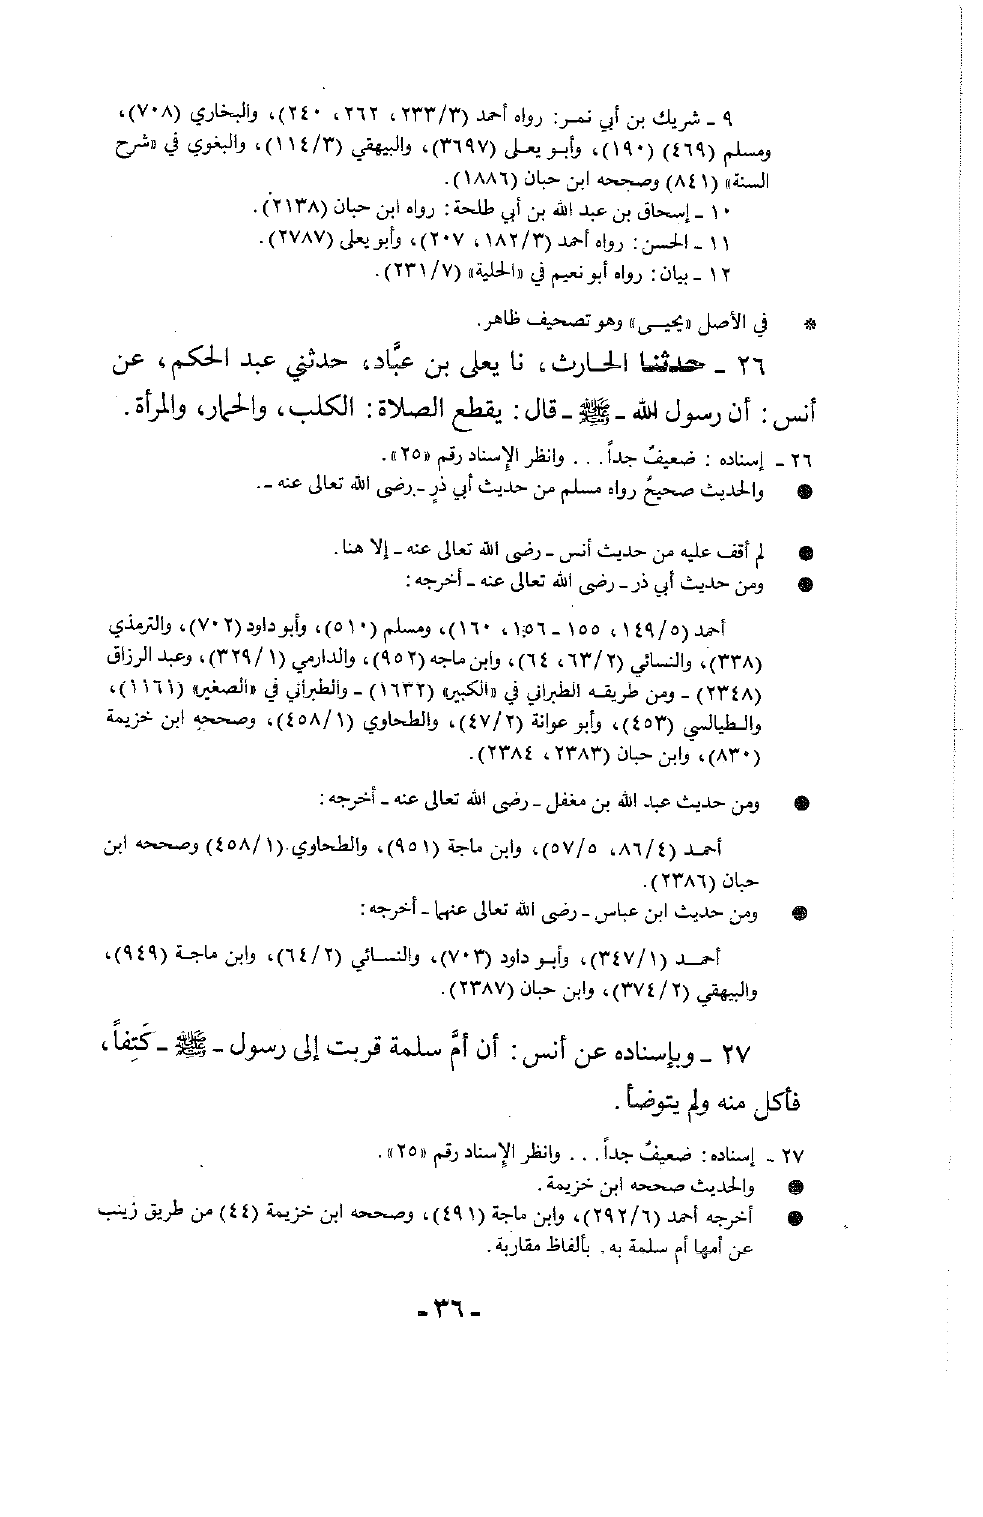 ٩ ـ شريك بن أبي نمر: رواه أحمد (٢٣٣/٣، ٢٦٢، ٢٤٠)، والبخاري (٧٠٨)،
ومسلم (٤٦٩) (١٩٠)، وأبو يعلى (٣٦٩٧)، والبيهقي (١١٤/٣)، والبغوي في «شرح
السنة» (٨٤١) وصححه ابن حبان (١٨٨٦).
١٠ ـ إسحاق بن عبد الله بن أبي طلحة: رواه ابن حبان (٢١٣٨).
١١ ـ الحسن: رواه أحمد (١٨٢/٣، ٢٠٧)، وأبو يعلى (٢٧٨٧).
١٢ ـ بيان: رواه أبو نعيم في «الحلية» (٢٣١/٧).
* في الأصل «يحيى» وهو تصحيف ظاهر.
٢٦ ـ حدثنا الحارث، نا يعلى بن عبَّاد، حدثني عبد الحكم، عن
أنس: أن رسول الله ـ ﷺ ـ قال: يقطع الصلاة: الكلب، والحمار، والمرأة.
٢٦ ـ إسناده: ضعيفٌ جداً... وانظر الإسناد رقم «٢٥».
● والحديث صحيحٌ رواه مسلم من حديث أبي ذرٍ ـ رضى الله تعالى عنه ـ.
● لم أقف عليه من حديث أنس ـ رضى الله تعالى عنه ـ إلا هنا.
● ومن حديث أبي ذر ـ رضى الله تعالى عنه ـ أخرجه:
أحمد (١٤٩/٥، ١٥٥ ـ ١٥٦، ١٦٠)، ومسلم (٥١٠)، وأبو داود (٧٠٢)، والترمذي
(٣٣٨)، والنسائي (٦٣/٢، ٦٤)، وابن ماجه (٩٥٢)، والدارمي (٣٢٩/١)، وعبد الرزاق
(٢٣٤٨) ـ ومن طريقه الطبراني في «الكبير» (١٦٣٢) ـ والطبراني في «الصغير» (١١٦١)،
والطيالسي (٤٥٣)، وأبو عوانة (٤٧/٢)، والطحاوي (٤٥٨/١)، وصححه ابن خزيمة
(٨٣٠)، وابن حبان (٢٣٨٣، ٢٣٨٤).
● ومن حديث عبد الله بن مغفل ـ رضى الله تعالى عنه ـ أخرجه:
أحمد (٨٦/٤، ٥٧/٥)، وابن ماجة (٩٥١)، والطحاوي (٤٥٨/١) وصححه ابن
حبان (٢٣٨٦).
● ومن حديث ابن عباس ـ رضى الله تعالى عنهما ـ أخرجه:
أحمد (٣٤٧/١)، وأبو داود (٧٠٣)، والنسائي (٦٤/٢)، وابن ماجة (٩٤٩)،
والبيهقي (٣٧٤/٢)، وابن حبان (٢٣٨٧).
٢٧ ـ وبإسناده عن أنس: أن أمَّ سلمة قربت إلى رسول ـ ﷺ ـ كَتِفاً،
فأكل منه ولم يتوضأ.
٢٧ ـ إسناده: ضعيفٌ جداً... وانظر الإسناد رقم «٢٥».
● والحديث صححه ابن خزيمة.
● أخرجه أحمد (٢٩٢/٦)، وابن ماجة (٤٩١)، وصححه ابن خزيمة (٤٤) من طريق زينب
عن أمها أم سلمة به. بألفاظ مقاربة.
ـ ٣٦ ـ